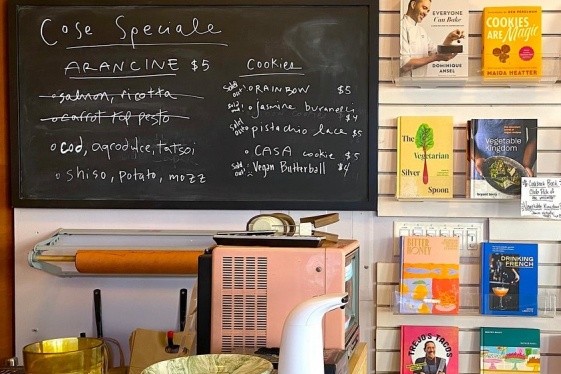 Cose Speciale
ARANCINE $5
salmon, ricotta
carrot top pesto
cod, agrodulce, tatsoi
shiso, potato, mozz
Cookies
Sold out! RAINBOW $5
Sold out! Jasmine buranelli $4
Sold out! pistachio lace $5
CASA cookie $5
Sold out Vegan Butterball $4
EVERYONE
Can Bake
DOMINIQUE
ANSEL
COOKIES
ARE Magic
MAIDA HEATTER
The
Vegetarian
Silver
Spoon
Vegetable
Kingdom
bryant terry
Cookbook Book
Club Pick of
Vegetable Kingdom
BITTER
HONEY
DRINKING
FRENCH
TREJO'S TACOS